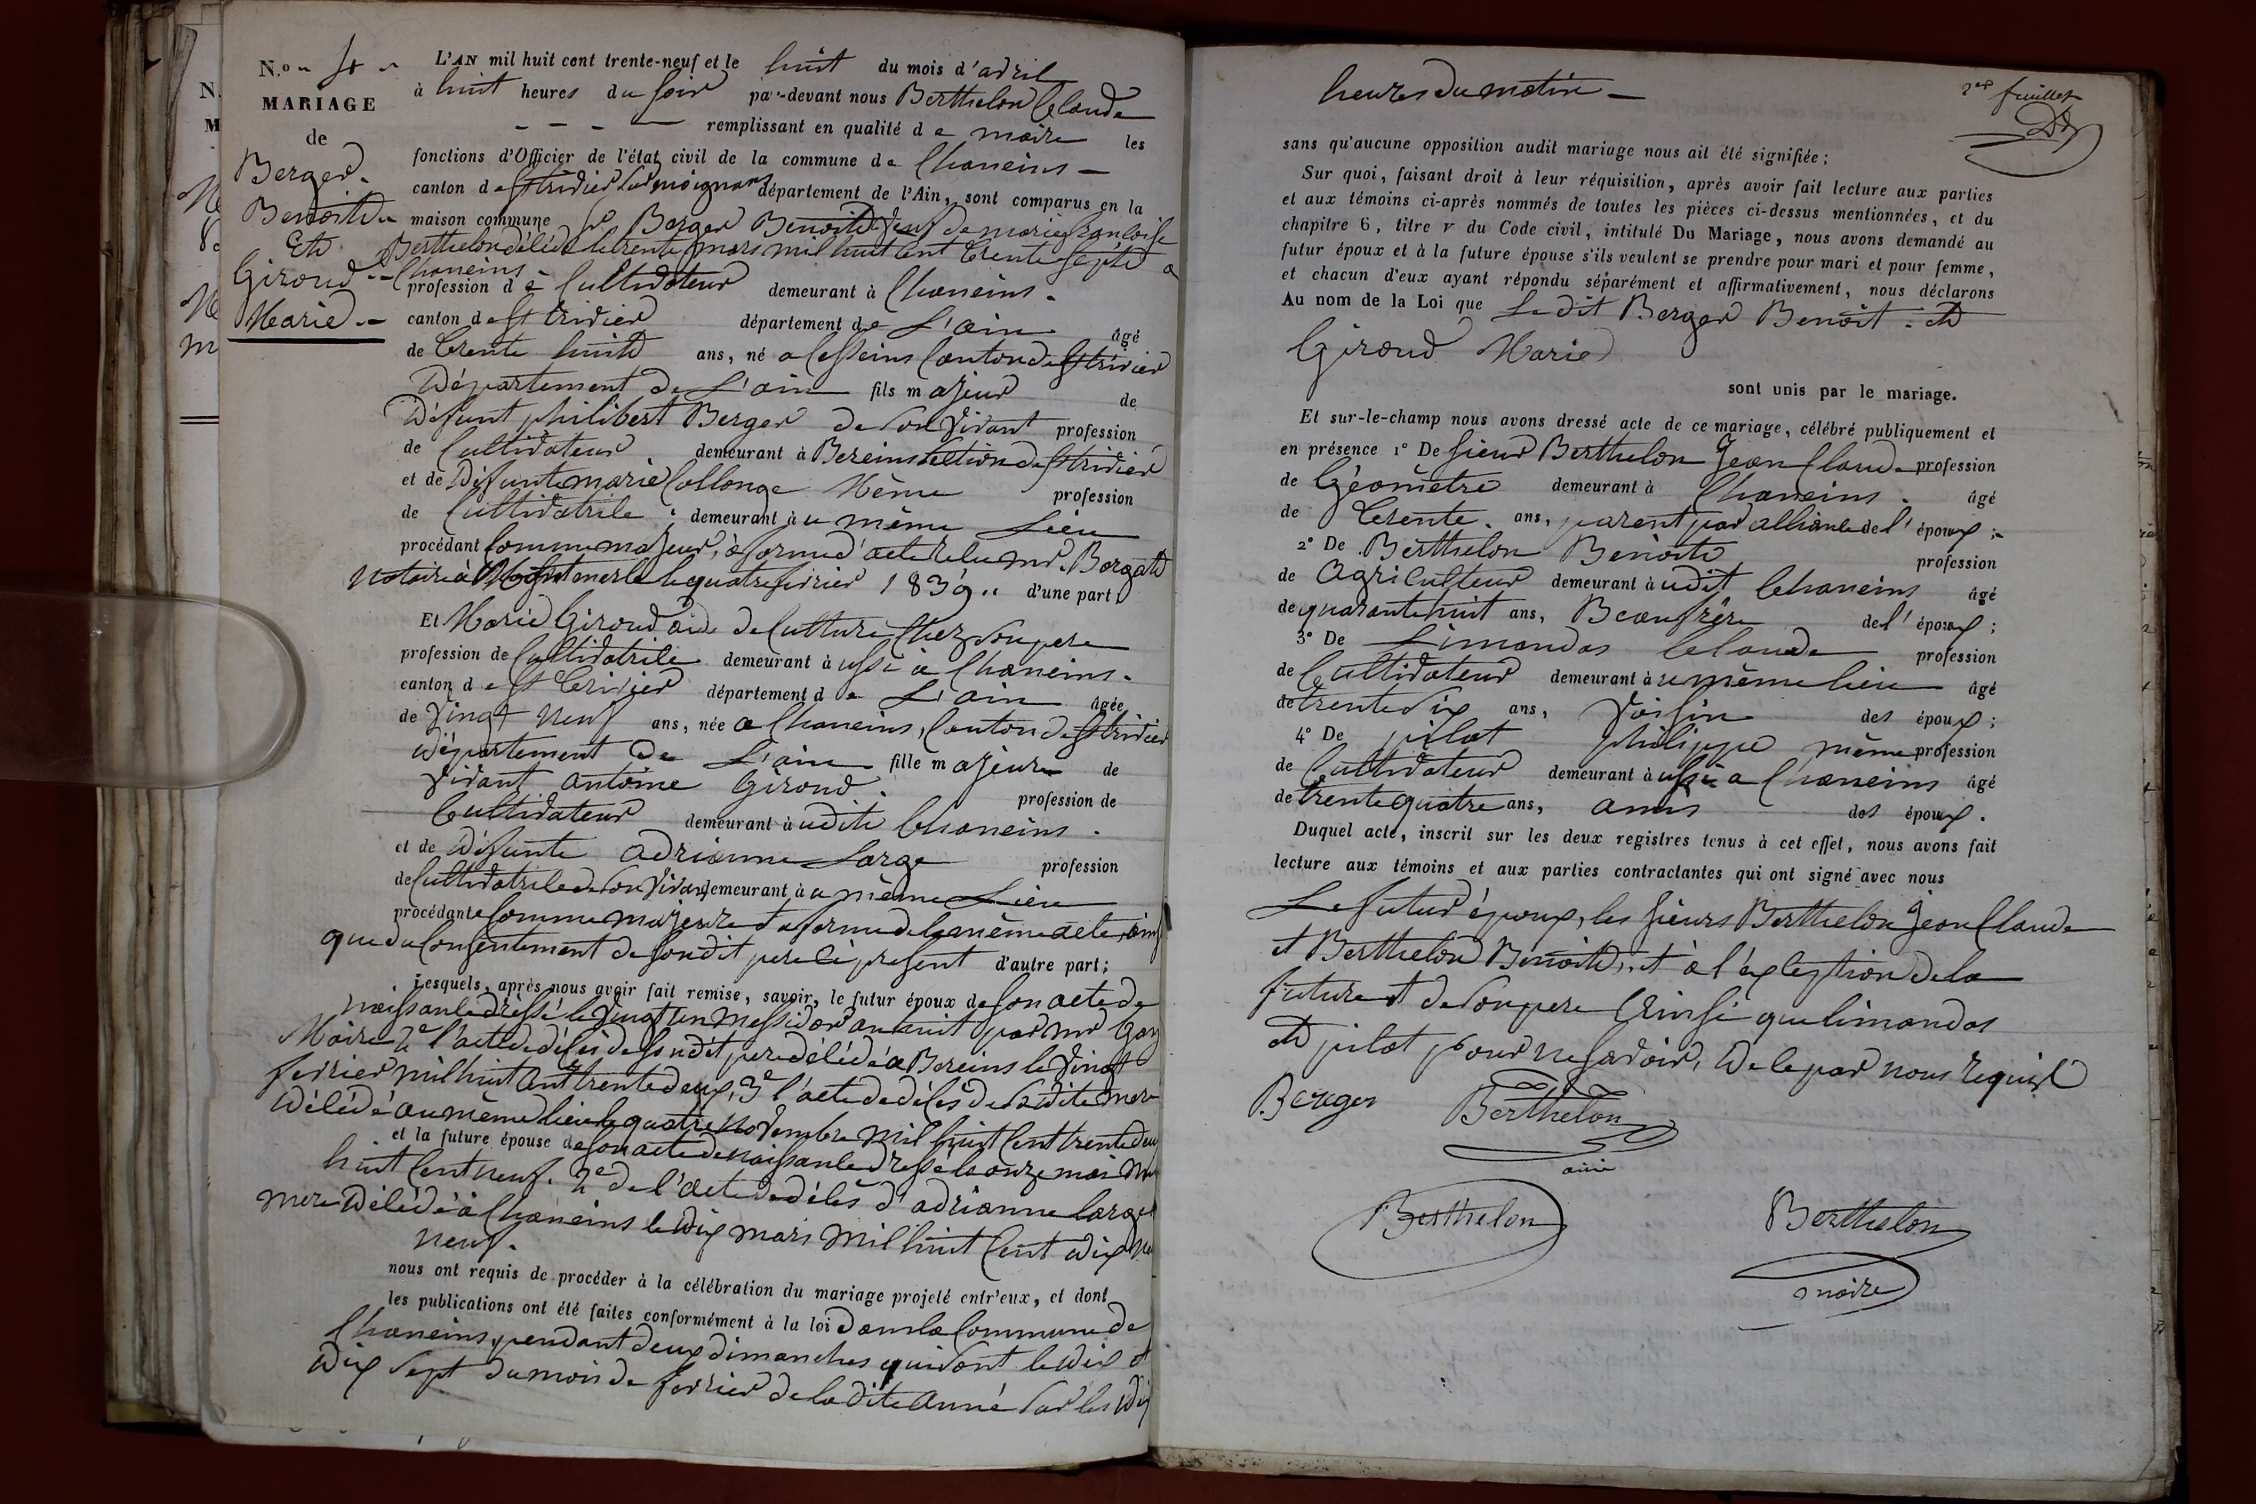 N.o 4
MARIAGE
de
Berger
Benoit
Et
Giroud
Marie
L'AN mil huit cent trente-neuf et le huit du mois d'avril
à huit heures du soir par-devant nous Berthelon Claude
remplissant en qualité de maire les
fonctions d'Officier de l'état civil de la commune de Chaneins
canton de St trivier sur moignans département de l'Ain, sont comparus en la
maison commune Sr Berger Benoit veuf de marie francoise
Berthelon décédé le trente mars mil huit cent trente sept a
Chaneins
profession de Cultivateur demeurant à Chaneins.
canton de St trivier département de L'ain âgé
de trente huit ans, né a Cesseins Canton de St trivier
Département de L'ain fils majeur de
Défunt philibert Berger de son vivant profession
de Cultivateur demeurant à Bereins section de St trivier
et de Défunte marie Collonge Même profession
de Cultivatrice demeurant à u même Lieu
procédant Comme majeur, à forme d'acte reçu mr. Borgat
Notaire à Montmerle le quatre fevrier 1839 d'une part
Et Marie Giroud aide de Culture Chez son pere
profession de Cultivatrice demeurant à ussi à Chaneins.
canton de St trivier département de L'ain âgée
de vingt neuf ans, née a Chaneins, Canton de St trivier
Département de L'ain fille majeure de
vivant antoine Giroud profession de
Cultivateur demeurant à udit Chaneins.
et de Défunte adrianne Large profession
de Cultivatrice de son vivant demeurant à u même Lieu
procédante Comme majeure et a forme de le même acte, ains
que du Consentement de son dit pere ici present d'autre part;
Lesquels, après nous avoir fait remise, savoir, le futur époux de son acte de
naissance dressé le vingt un Messidor an huit par mr Gay
Maire 2e l'acte de décés de son dit pere décédé a Bereins le vingt
fevrier mil huit cent trente deux, 3e l'acte de décés de sa dite mere
Décédé au même lieu le quatre novembre mil huit Cent trente deu
et la future épouse de son acte de naissance dressé le onze mai Mil
huit Cent neuf. 2e de l'acte de décés d'adrianne large
mere Décédé à Chaneins le Dix mars mil huit Cent Dix
neuf.
nous ont requis de procéder à la célébration du mariage projeté entr'eux, et dont
les publications ont été faites conformément à la loi dans la Commune de
Chaneins, pendant deux dimanches qui sont le dix et
Dix sept du mois de fevrier de la dite année sur les Dix
2e feuillet
heures du matin
sans qu'aucune opposition audit mariage nous ait été signifiée;
Sur quoi, faisant droit à leur réquisition, après avoir fait lecture aux parties
et aux témoins ci-après nommés de toutes les pièces ci-dessus mentionnées, et du
chapitre 6, titre v du Code civil, intitulé Du Mariage, nous avons demandé au
futur époux et à la future épouse s'ils veulent se prendre pour mari et pour femme,
et chacun d'eux ayant répondu séparément et affirmativement, nous déclarons
Au nom de la Loi que Le dit Berger Benoit et
Giroud Marie
sont unis par le mariage.
Et sur-le-champ nous avons dressé acte de ce mariage, célébré publiquement et
en présence 1° De Sieur Berthelon Jean Claude profession
de Géomètre demeurant à Chaneins. âgé
de trente ans, parent par alliance de l'époux;
2° De Berthelon Benoit profession
de agriculteur demeurant à udit Chaneins âgé
de quarante huit ans, Beaufrère de l'époux;
3° De Limandas Claude profession
de Cultivateur demeurant à u même lieu âgé
de trente six ans, voisin des époux;
4° De pilat philippe même profession
de Cultivateur demeurant à ussi a Chaneins âgé
de trente quatre ans, amis des époux.
Duquel acte, inscrit sur les deux registres tenus à cet effet, nous avons fait
lecture aux témoins et aux parties contractantes qui ont signé avec nous
Le futur époux, les Sieurs Berthelon Jean Claude
et Berthelon Benoit, et à l'exception de la
future et de son pere Ainsi que limandas
et pilat pour ne savoir, De ce par nous requis
Berger Berthelon
ainé
Berthelon Berthelon
maire